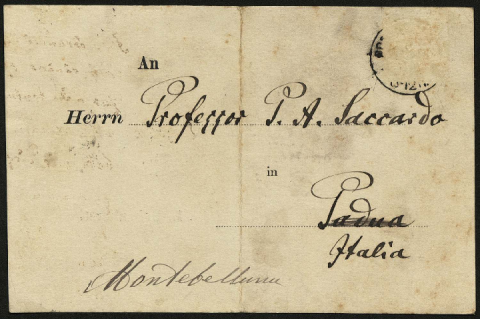 An
Herrn Professor P. A. Saccardo
in
Padua
Italia
Montebelluna